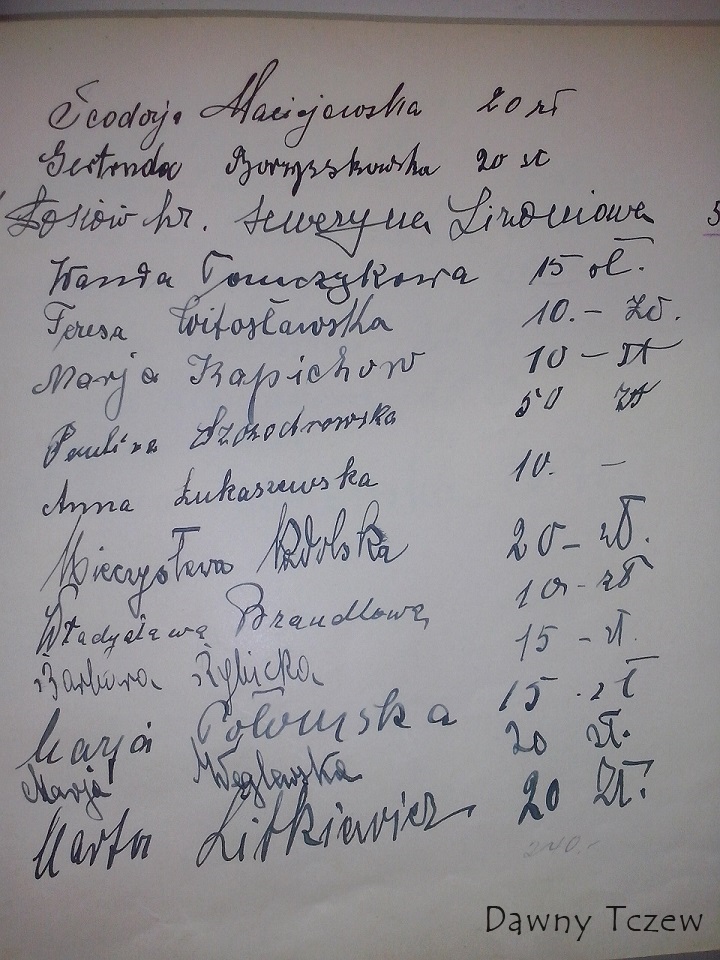 Teodozja Maciejewska 20 zł
Gertruda Borzyszkowska 20 zł
hr. Seweryna 5
Wanda Tomczykowa 15 zł.
Teresa Witosławska 10.- zł.
Marja Kapichow 10 - zł
Paulina Szczodrowska 50 zł
Anna Łukaszewska 10. -
Mieczysława 20 - zł.
Władysława Brandlowa 10 - zł
Barbara Rybicka 15 - zł.
Marja Połomska 15 . zł
Marja Węglewska 20 zł.
Marta Litkiewicz 20 zł.
240.-
Dawny Tczew